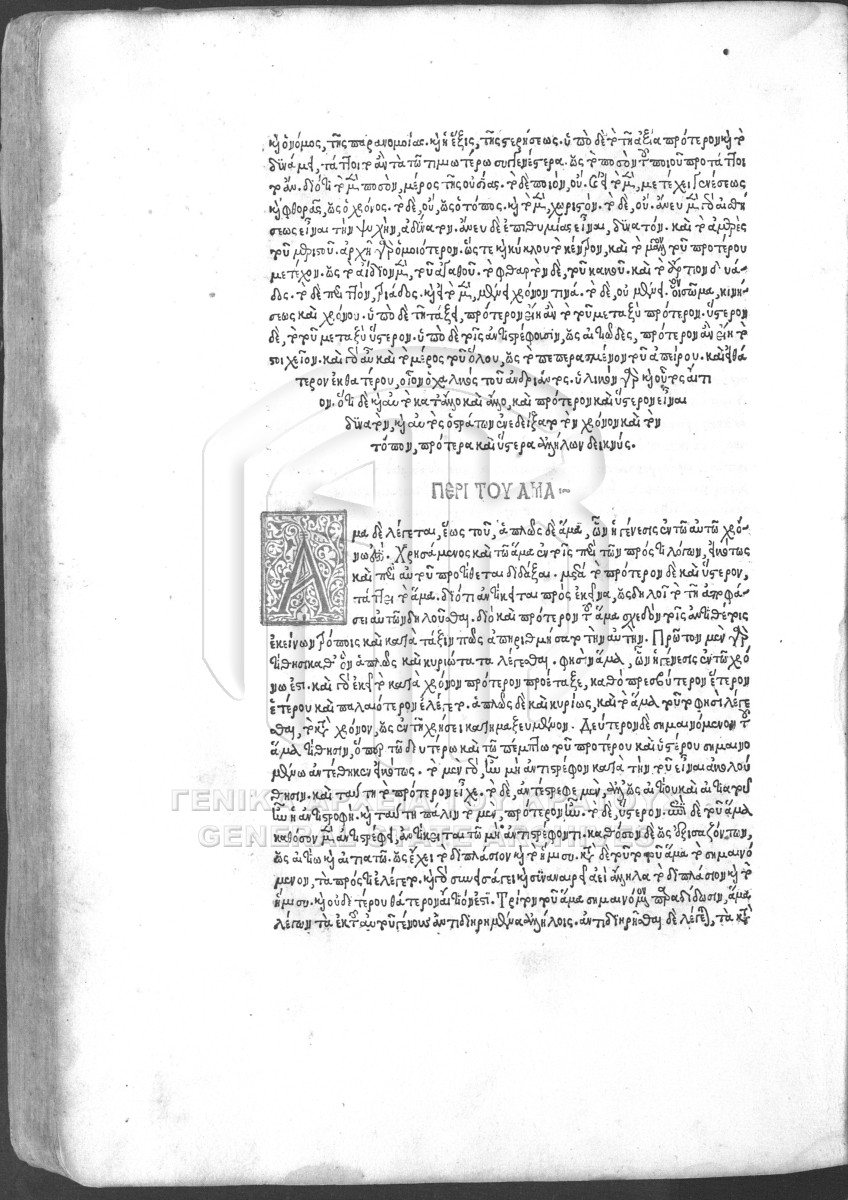 καὶ ὁ νόμος, τῆς παρανομίας. καὶ ἡ ἕξις, τῆς στερήσεως. ὑπὸ δὲ τὸ τῇ ἀξίᾳ πρότερον καὶ τὸ
δυνάμει, τάττοιτο ἂν τὰ τῷ τιμιωτέρῳ συγγενέστερα. ὡς τὸ ποσὸν τοῦ ποιοῦ προτάττοι
το ἄν. διότι τὸ μὲν ποσὸν, μέρος τῆς οὐσίας. τὸ δὲ ποιὸν, οὔ. καὶ τὸ μὲν, μετέχει γενέσεως
καὶ φθορᾶς, ὡς ὁ χρόνος. τὸ δὲ, οὔ, ὡς ὁ τόπος. καὶ τὸ μὲν, χωριστόν. τὸ δὲ, οὔ. ἄνευ μὲν γὰρ αἰσθή
σεως εἶναι τὴν ψυχὴν, ἀδύνατον. ἄνευ δὲ ἐπιθυμίας εἶναι, δυνατόν. καὶ τὸ ἀμερὲς
τοῦ μεριστοῦ. ἀρχῇ γὰρ ὁμοιότερον. ὥστε καὶ κύκλου τὸ κέντρον, καὶ τὸ μᾶλλον τοῦ προτέρου
μετέχον. ὡς τὸ ἀΐδιον μὲν, τοῦ ἀγαθοῦ. τὸ φθαρτὸν δὲ, τοῦ κακοῦ. καὶ τὸ ἄρτιον δυά
δος. τὸ δὲ περιττὸν, τριάδος. καὶ εἰ τὸ μὲν, μένει χρόνον τινά. τὸ δὲ, οὐ μένει. οἷον σῶμα, κινή
σεως καὶ χρόνου. ὑπὸ δὲ τῇ τάξει, πρότερον εἴη ἂν τὸ τοῦ μεταξὺ πρότερον. ὕστερον
δὲ, τὸ τοῦ μεταξὺ ὕστερον. ὑπὸ δὲ τοῖς ἀντιστρέφουσιν, ὡς αἰτιῶδες, πρότερον ἂν εἴη τὸ
στοιχεῖον. καὶ γὰρ αὖ καὶ τὸ μέρος τοῦ ὅλου, ὡς τὸ πεπερασμένον τοῦ ἀπείρου. καὶ θά
τερον ἑκθατέρου, οἷον ὁ χαλινὸς τοῦ ἀνδριάντος. ὑλικὸν γὰρ καὶ οὗτος αἴτι
ον. ὅτι δὲ καὶ αὐτὸ κατ' ἄλλο καὶ ἄλλο, καὶ πρότερον καὶ ὕστερον εἶναι
δύναται, καὶ αὐτὸς ὁ Στράτων ἐνεδείξατο τὸν χρόνον καὶ τὸν
τόπον, πρότερα καὶ ὕστερα ἀλλήλων δεικνύς.
ΠΕΡΙ ΤΟΥ ΑΜΑ
Ἅμα δὲ λέγεται, ἕως τοῦ, ἁπλῶς δὲ ἅμα, ὧν ἡ γένεσις ἐν τῷ αὐτῷ χρό
νῳ ἐστί. Χρησάμενος καὶ τῷ ἅμα ἐν τοῖς περὶ τῶν πρός τι λόγοις, εἰκότως
καὶ περὶ αὐτοῦ προτίθεται διδάξαι. μετὰ τὸ πρότερον δὲ καὶ ὕστερον,
τάττει τὸ ἅμα. διότι ἀντίκειται πρὸς ἐκεῖνα, ὡς δηλοῖ τὸ τῇ ἀποφά
σει αὐτῶν δηλοῦσθαι. διὸ καὶ πρότερον τοῦ ἅμα σχεδὸν τοῖς ἀντιθέτοις
ἐκείνων τρόποις καὶ κατὰ τάξιν πως ἀπηριθμήσατο τὴν αὐτήν. Πρῶτον μὲν γὰρ
τίθησι καθ' ὃν ἁπλῶς καὶ κυριώτατα λέγεσθαι φησὶν ἅμα, ὧν ἡ γένεσις ἐν τῷ χρό
νῳ ἐστί. καὶ γὰρ ἐκεῖ τὸ κατὰ χρόνον πρότερον προέταξε, καθὸ πρεσβύτερον ἕτερον
ἑτέρου καὶ παλαιότερον ἐλέγετο. ἁπλῶς δὲ καὶ κυρίως, καὶ τὸ ἅμα τοῦτο φησὶ λέγε
σθαι, τὸ κατὰ χρόνον, ὡς ἐν τῇ χρήσει κατημαξευμένον. Δεύτερον δὲ σημαινόμενον τοῦ
ἅμα τίθησιν, ὅπερ τῷ δευτέρῳ καὶ τῷ πέμπτῳ τοῦ προτέρου καὶ ὑστέρου σημαινο
μένῳ ἀντέθηκεν εἰκότως. τὸ μὲν γὰρ, ἦν μὴ ἀντιστρέφον κατὰ τὴν τοῦ εἶναι ἀκολού
θησιν. καὶ ταύτῃ τὸ πρότερον εἶχε. τὸ δὲ, ἀντέστρεφε μὲν, ἀλλ' ὡς αἰτίου καὶ αἰτιατοῦ
ἦν ἡ ἀντιστροφή. καὶ ταύτῃ πάλιν τὸ μὲν, πρότερον ἦν. τὸ δὲ, ὕστερον. ἐπὶ δὲ τοῦ ἅμα
καθόσον μὲν ἀντιστρέφει, ἀντίκειται τῷ μὴ ἀντιστρέφοντι. καθόσον δὲ ὡς
ὡς αἰτίῳ καὶ αἰτιατῷ. ὡς ἔχει τὸ διπλάσιον καὶ τὸ ἥμισυ. κατὰ δὲ τοῦτο τοῦ ἅμα τὸ σημαινό
μενον, τὰ πρός τι ἐλέγετο. καὶ γὰρ συνεισάγει καὶ συναναιρεῖ ἀεὶ ἄλληλα τὸ διπλάσιον καὶ τὸ
ἥμισυ. καὶ οὐδετέρου θάτερον αἴτιόν ἐστι. Τρίτον τοῦ ἅμα σημαινόμενον παραδίδωσιν, ἅμα
λέγων τὰ ἐκ τοῦ αὐτοῦ γένους ἀντιδιῃρημένα ἀλλήλοις. ἀντιδιῃρῆσθαι δὲ λέγει, τὰ κατὰ
ΓΕΝΙΚΑ ΑΡΧΕΙΑ ΤΟΥ ΚΡΑΤΟΥΣ
GENERAL STATE ARCHIVES